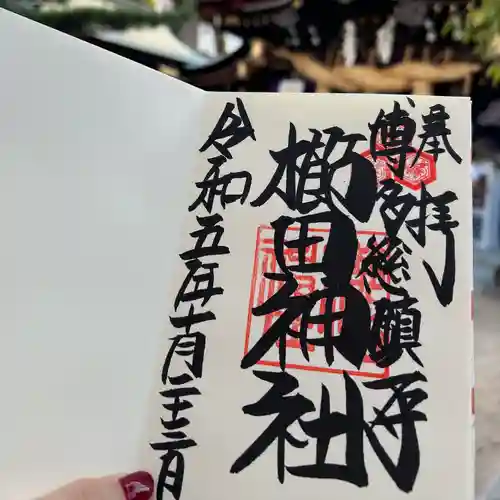 奉拝
博多総鎮守
櫛田神社
令和五年十月二十二日